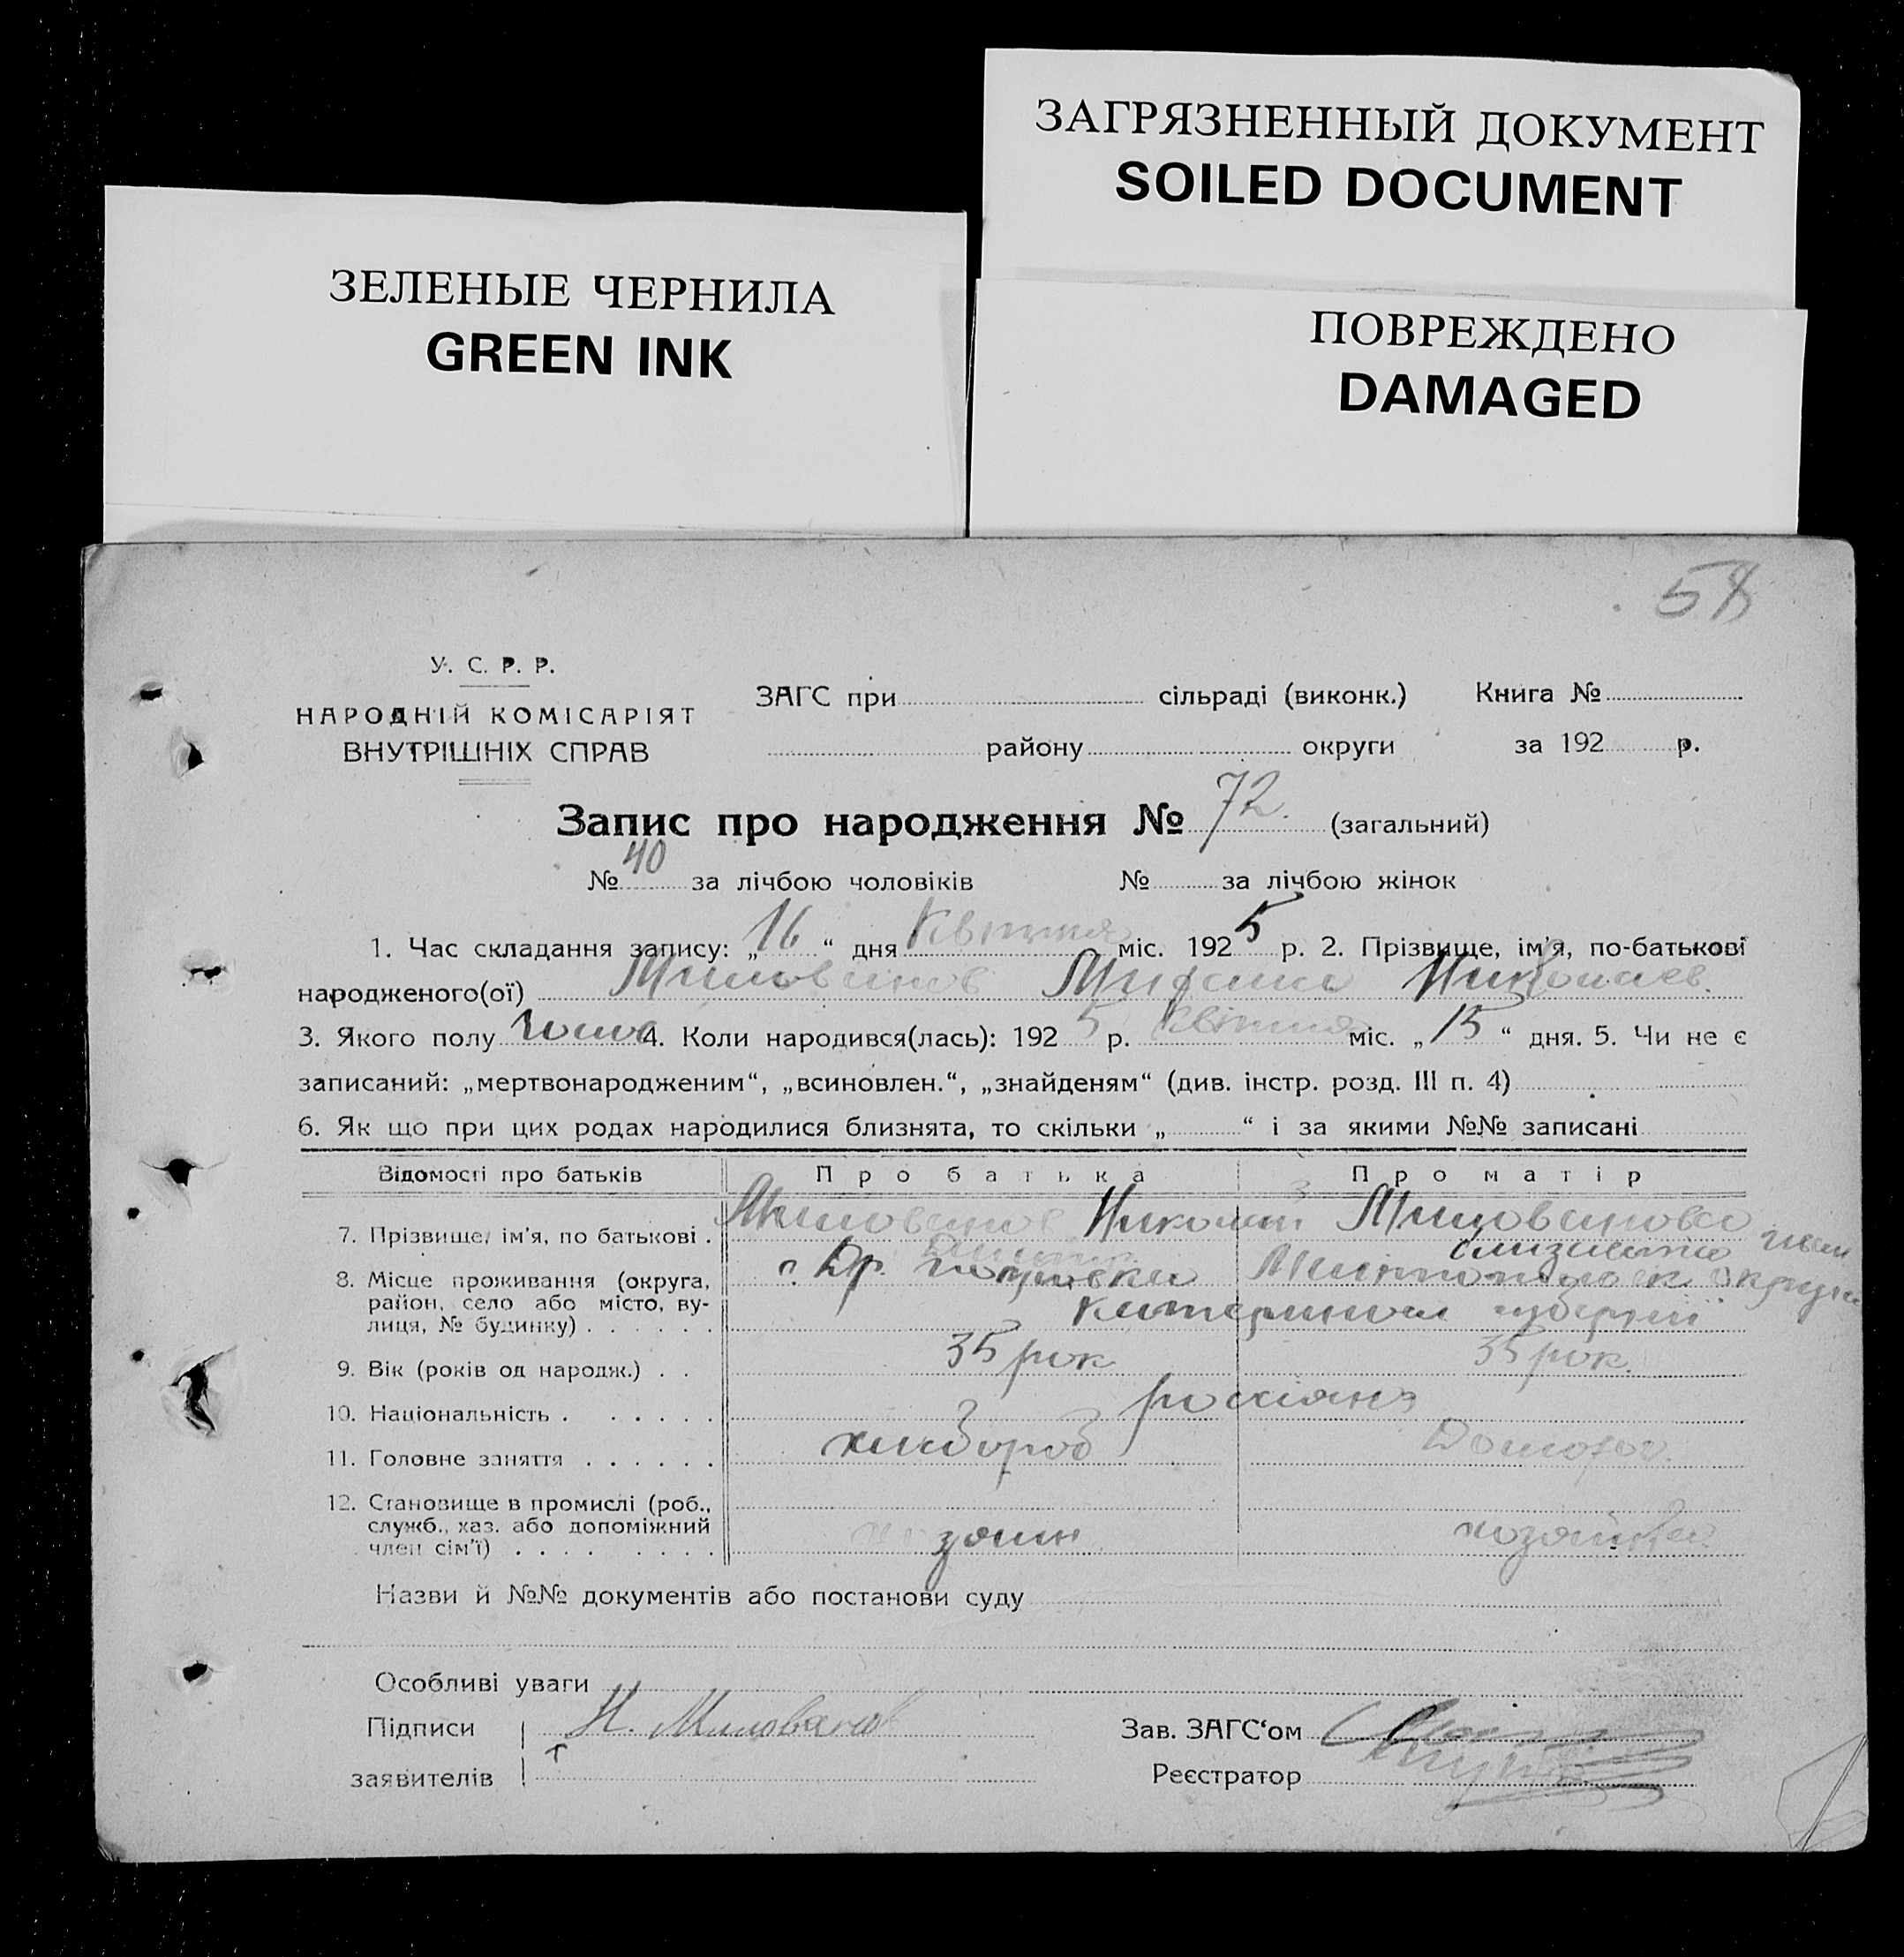 ЗАГРЯЗНЕННЫЙ ДОКУМЕНТ
SOILED DOCUMENT
ЗЕЛЕНЫЕ ЧЕРНИЛА
GREEN INK
ПОВРЕЖДЕНО
DAMAGED
58
У. С. Р. Р.
НАРОДНІЙ КОМІСАРІЯТ
ВНУТРІШНІХ СПРАВ
ЗАГС при сільраді (виконк.) Книга №
району округи за 192 р.
Запис про народження № 72. (загальний)
№ 40 за лічбою чоловіків № за лічбою жінок
1. Час складання запису: „16“ дня Квітня міс. 1925 р. 2. Прізвище, ім'я, по-батькові
народженого(ої) Милованов Николаев.
3. Якого полу 4. Коли народився(лась): 1925 р. Квітня міс. „15“ дня. 5. Чи не є
записаний: „мертвонародженим“, „всиновлен.“, „знайденям“ (див. інстр. розд. III п. 4)
6. Як що при цих родах народилися близнята, то скільки „ “ і за якими №№ записані
Відомості про батьків Про батька Про матір
7. Прізвище, ім'я, по батькові . Милованов Николай Милованова
Елизавета
8. Місце проживання (округа, район, село або місто, вулиця, № будинку) . . . . . .
9. Вік (років од народж.) . . 35 рок 35 рок.
10. Національність . . . . . . росіяне
11. Головне заняття . . . . . . хлібороб Домогос.
12. Становище в промислі (роб.,
служб., хаз. або допоміжний
член сім'ї) . . . . . . . . хозяин хозяйка
Назви й №№ документів або постанови суду
Особливі уваги
Підписи Н. Милованов Зав. ЗАГС‘ом
заявителів Реєстратор